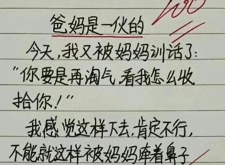 100
爸妈是一伙的
今天,我又被妈妈训话了:
“你要是再淘气,看我怎么收
拾你!”
我感觉这样下去,肯定不行,
不能就这样被妈妈牵着鼻子